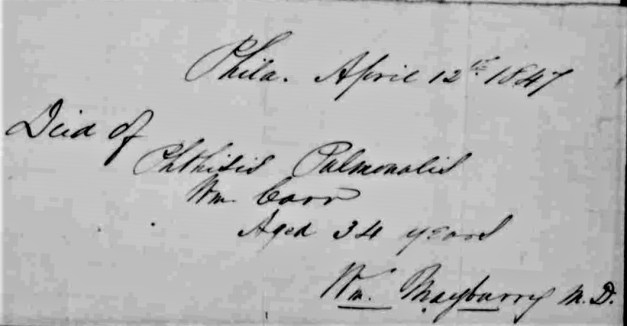 Phila. April 12th 1847
Died of
Phthisis Pulmonalis
Wm. Carr
Aged 34 years
Wm. Mayburry M.D.